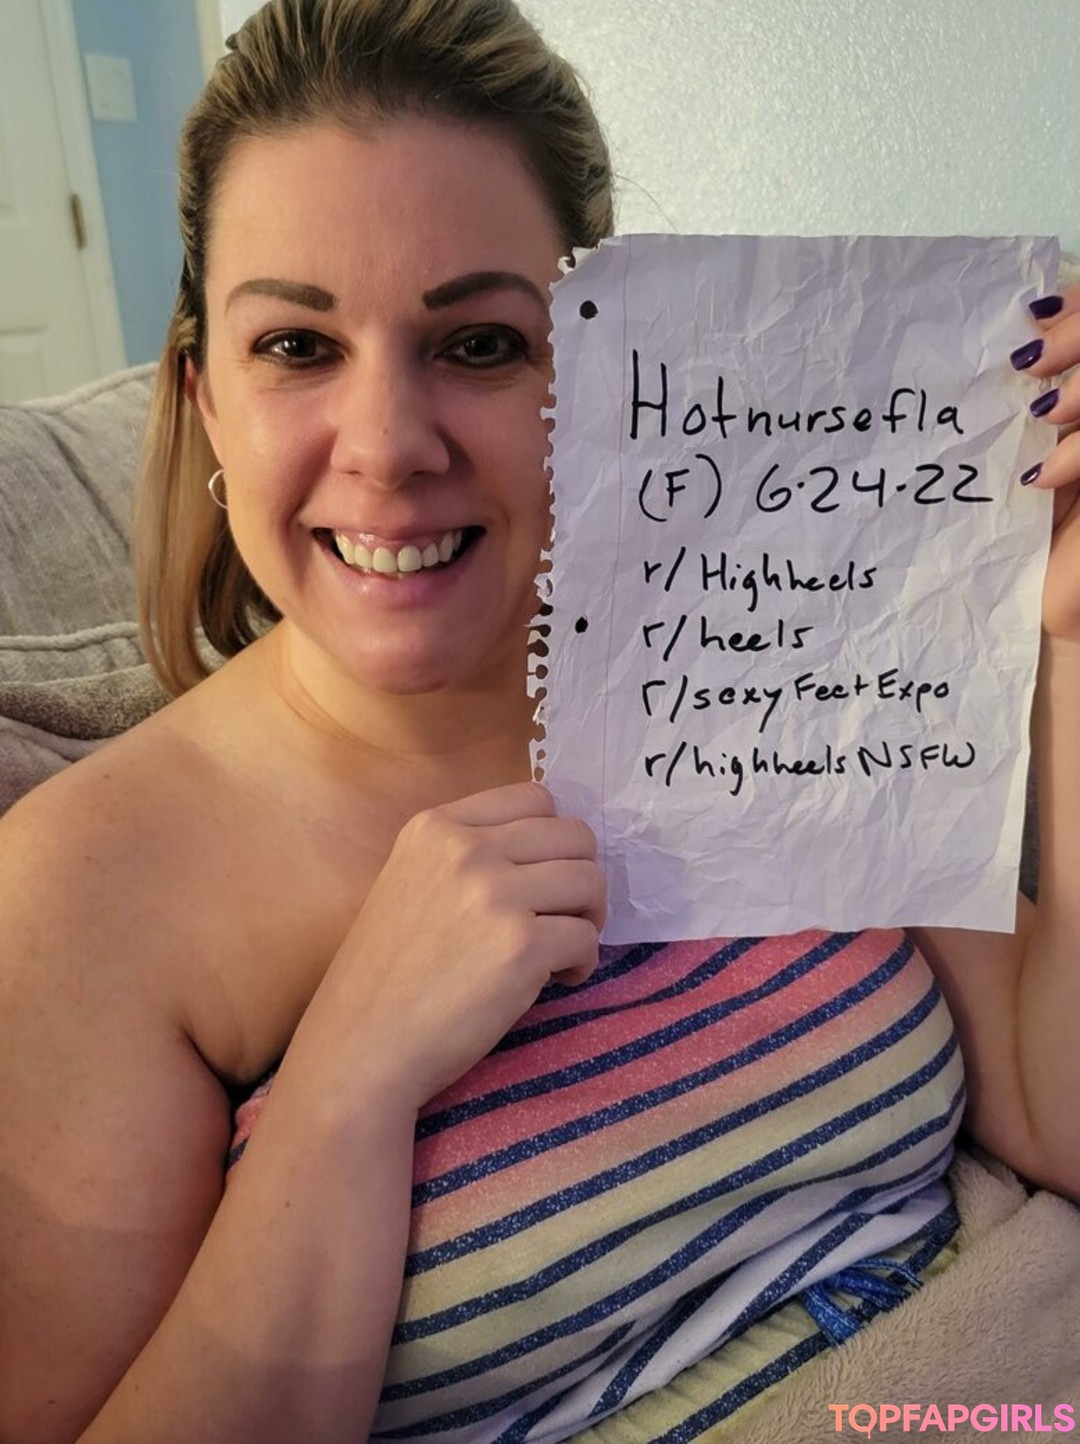 Hotnursefla
(F) 6·24·22
r/Highheels
r/heels
r/sexyFeetExpo
r/highheelsNSFW
TOPFAPGIRLS